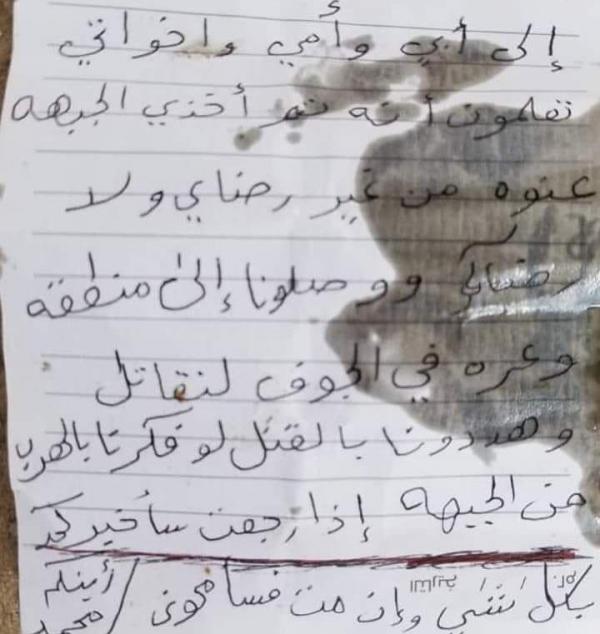 إلى أبي وأمي واخواتي
تعلمون أنه تم أخذي الجبهه
عنوه من غير رضاي ولا
رضاكم ووصلونا إلى منطقه
وعره في الجوف لنقاتل
وهددونا بالقتل لو فكرنا بالهرب
من الجبهه إذا رجعت سأخبركم
بكل شي وإن مت فسامحوني / أبنكم
محمد